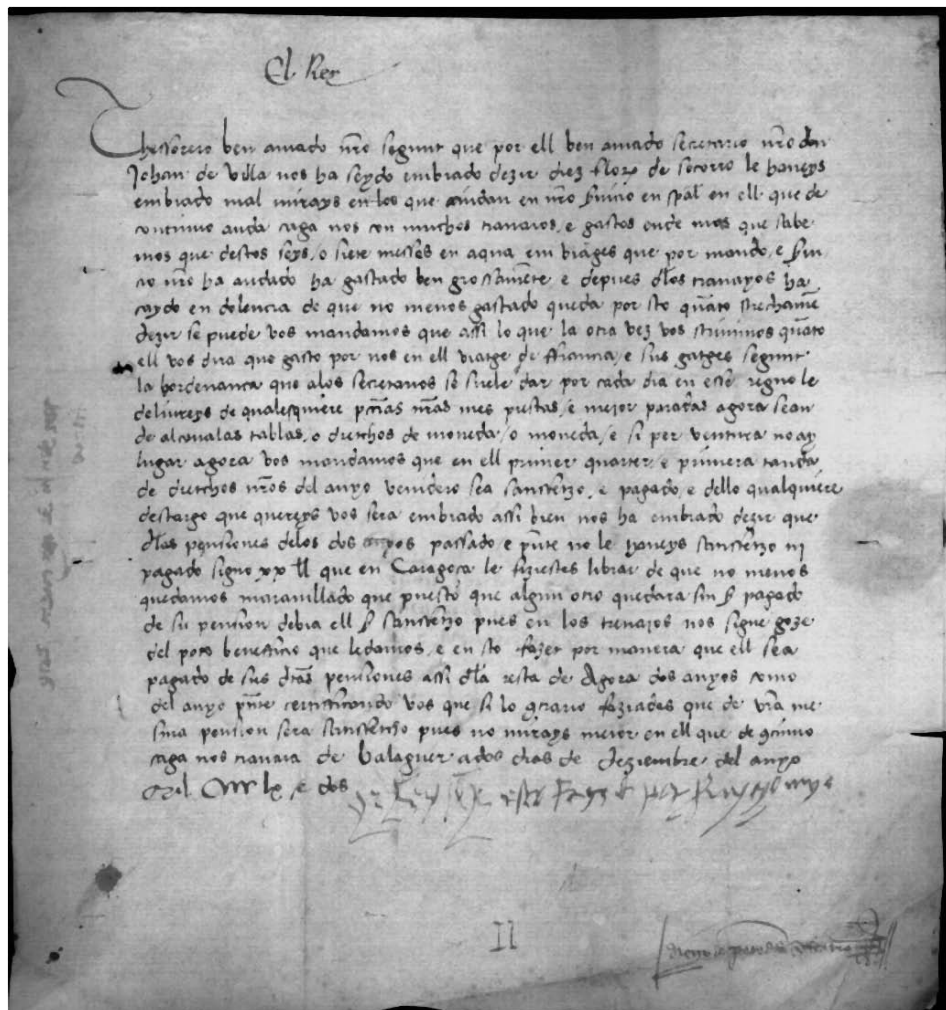 El Rey
Thessorero ben amado nro segunt que por ell ben amado secretario nro don
Johan de villa nos ha seydo embiado dezir diez flors de socorro le haueys
embiado mal mirays en los que cuidan en nro seruicio en spal en ell que de
continuo anda caga nos con muchos trauaios, e gastos ende mas que sabe
mos que destos seys, o siete meses en aqua, em viages que por mando, e serui
cio nro ha andado ha gastado ben grossamente e depues dlos trauayos ha
caydo en dolencia de que no menos gastado queda por sto quato strechamet
dezir se puede vos mandamos que assi lo que la otra vez vos scriuimos quato
ell vos dira que gasto por nos en ell viatge de ffrancia, e sus gatges segunt
la hordenança que alos secretarios se suele dar por cada dia en esse regno le
deliureys de qualesquiere pecunias nras mes prestas, e mejor paradas agora sean
de alcaualas tablas, o dretchos de moneda, o moneda, e si per ventura no ay
lugar agora vos mandamos que en ell primer quarter, e primera tanda
de dretchos nros del anyo venidero sea satisfetzo, e pagado, e dello qualquiere
descargo que querays vos sera embiado assi bien nos ha embiado dezir que
dlas pensiones delos dos anyos passado, e pnte no le haueys satisfetzo ni
pagado signo xx ll que en Caragoça le fiziestes librar de que no menos
quedamos marauillado que puesto que algun otro quedara sin s pagado
de su pension debia ell s satisfetzo pues en los trauajos nos sigue goze
del poco beneficio que le damos, e en sto fazet por manera que ell sea
pagado de sus dtas pensiones assi dla resta de Agora dos anyos como
del anyo pnte certifficando vos que si lo contrario faziades que de vra me
sma pension sera satisfetzo pues no mirays meior en ell que de continuo
caga nos trauaia de balaguer a dos dias de deziembre del anyo
Mil CCCC lx, e dos
II